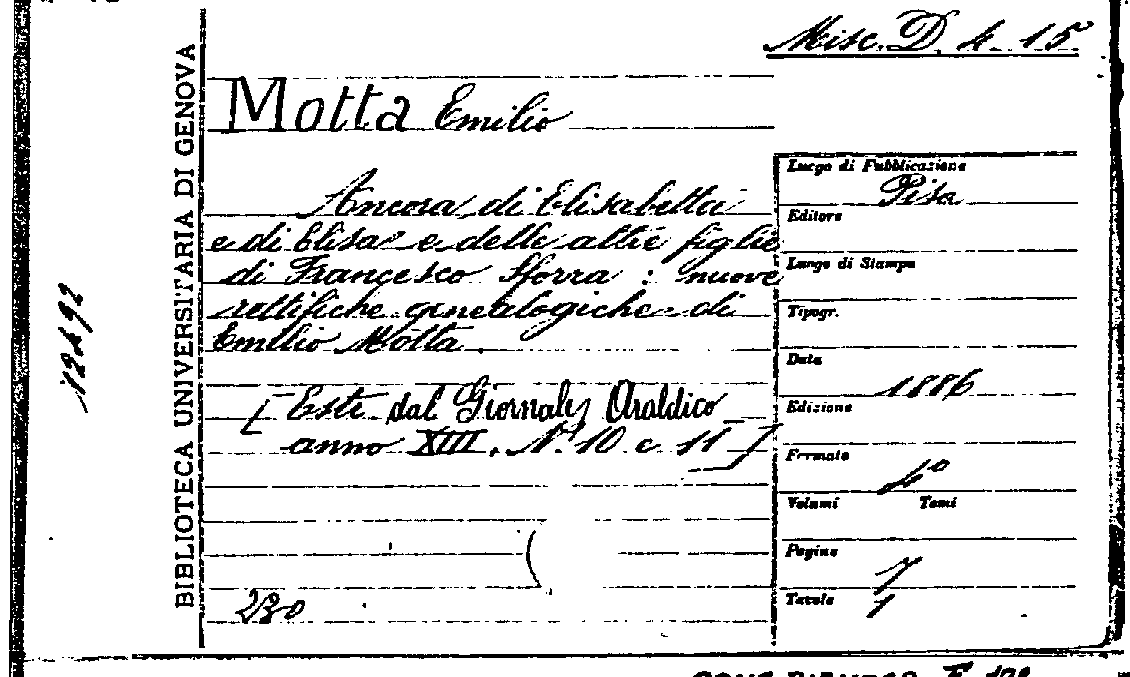 Misc. D. 4. 15.
BIBLIOTECA UNIVERSITARIA DI GENOVA
12492
Motta Emilio
Ancora di Elisabetta
e di Elisa e delle altre figlie
di Francesco Sforza : nuove
rettifiche genealogiche di
Emilio Motta.
[Estr. dal Giornale Araldico
anno XIII. N. 10 e 11]
230
Luogo di Pubblicazione
Pisa
Editore
Luogo di Stampa
Tipogr.
Data
1886
Edizione
Formato
4°
Volumi Tomi
Pagine
7
Tavole
1